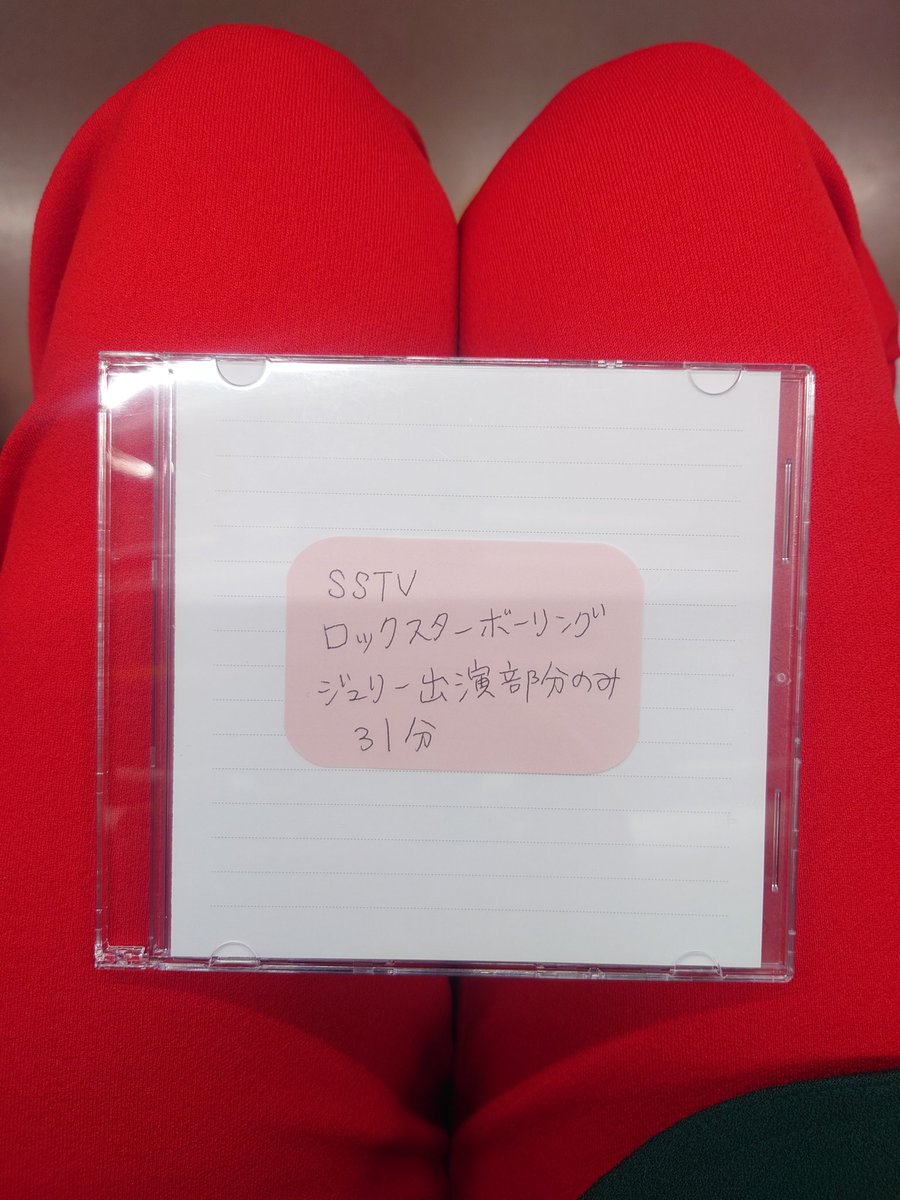 SSTV
ロックスターボーリング
ジュリー出演部分のみ
31分